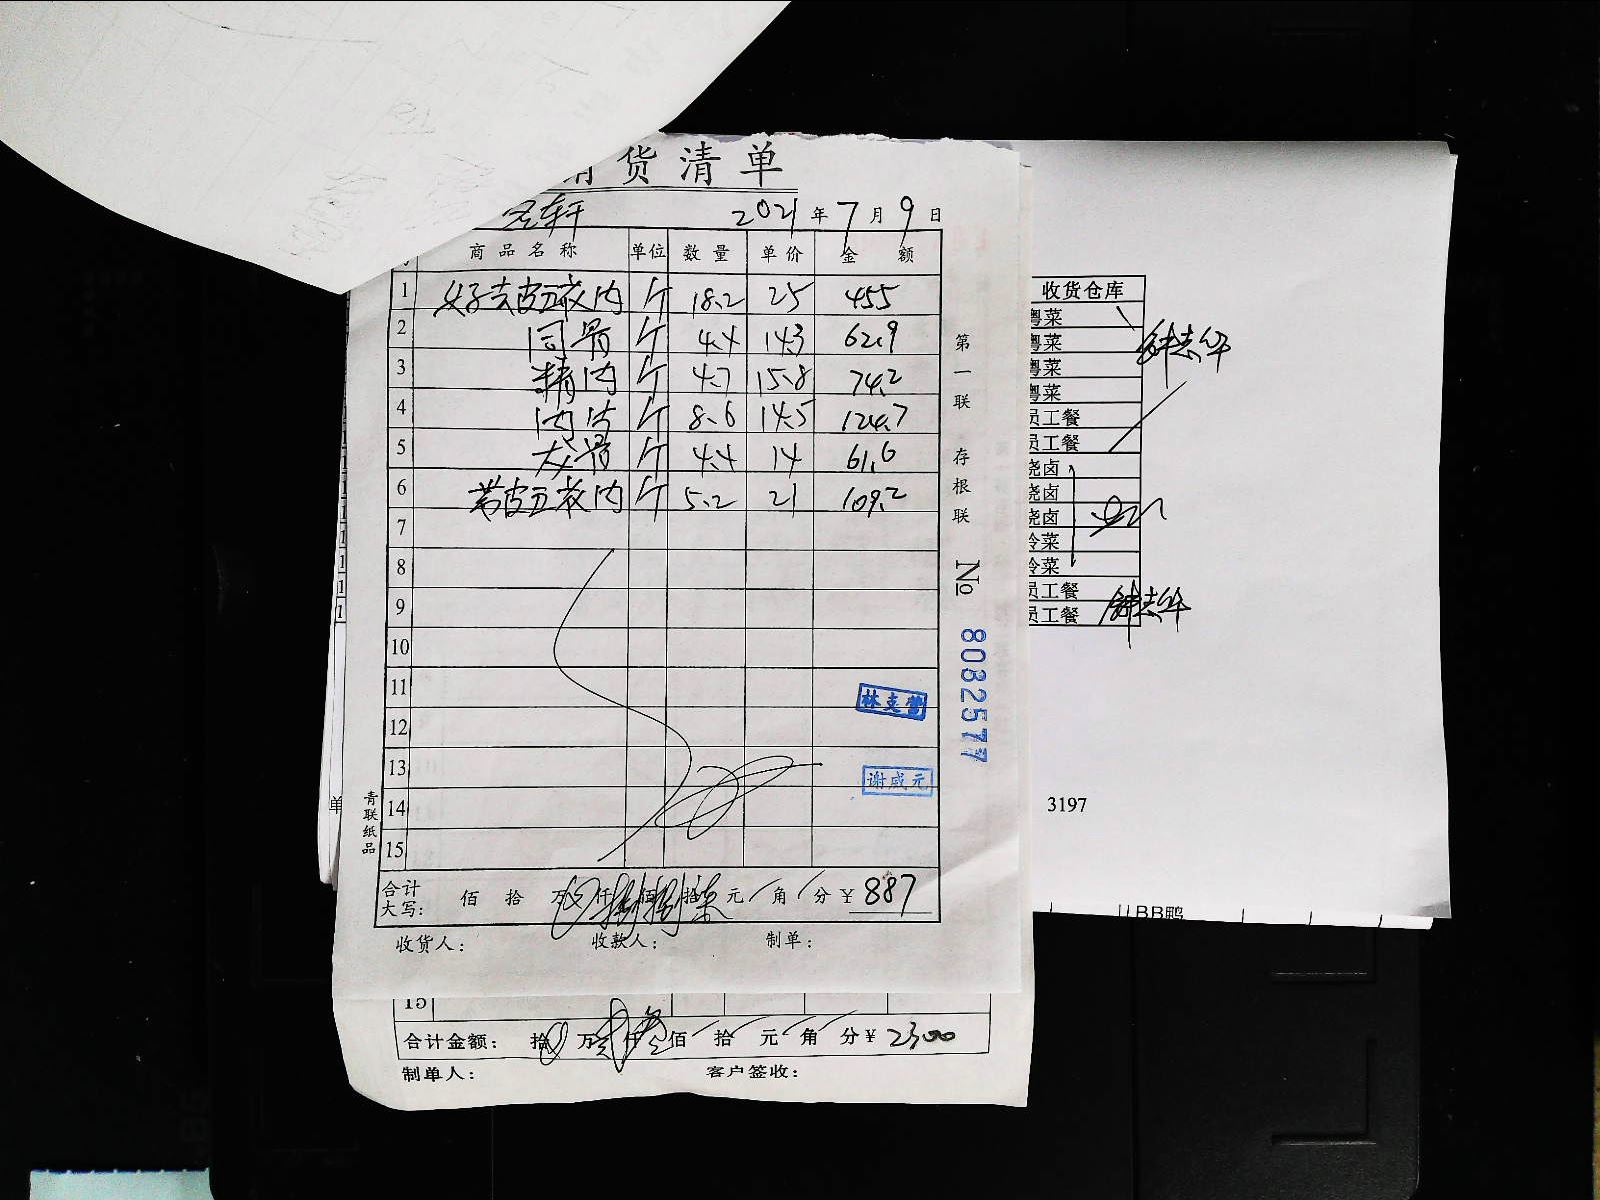 货清单
圣轩 2021年7月9日
商品名称 单位 数量 单价 金额
1 好去皮五花肉 斤 18.2 25 455
2 同骨 斤 4.4 14.3 62.9
3 精肉 斤 4.7 15.8 74.2
4 肉片 斤 8.6 14.5 124.7
5 龙骨 斤 4.4 14 61.6
6 带皮五花肉 斤 5.2 21 109.2
7
8
9
10
11
12
13
14
15
林克营
谢成元
合计大写: 佰 拾 万 仟捌佰捌拾柒元 角 分 ¥ 887
收货人: 收款人: 制单:
第一联 存根联
No 8032577
青联纸品
15
合计金额: 拾 万贰仟叁佰 拾 元 角 分 ¥ 2300
制单人: 客户签收:
收货仓库
粤菜
粤菜
粤菜
粤菜
员工餐
员工餐
烧卤
烧卤
烧卤
冷菜
冷菜
员工餐
员工餐
钟志华
钟志华
3197
BB鸭
单